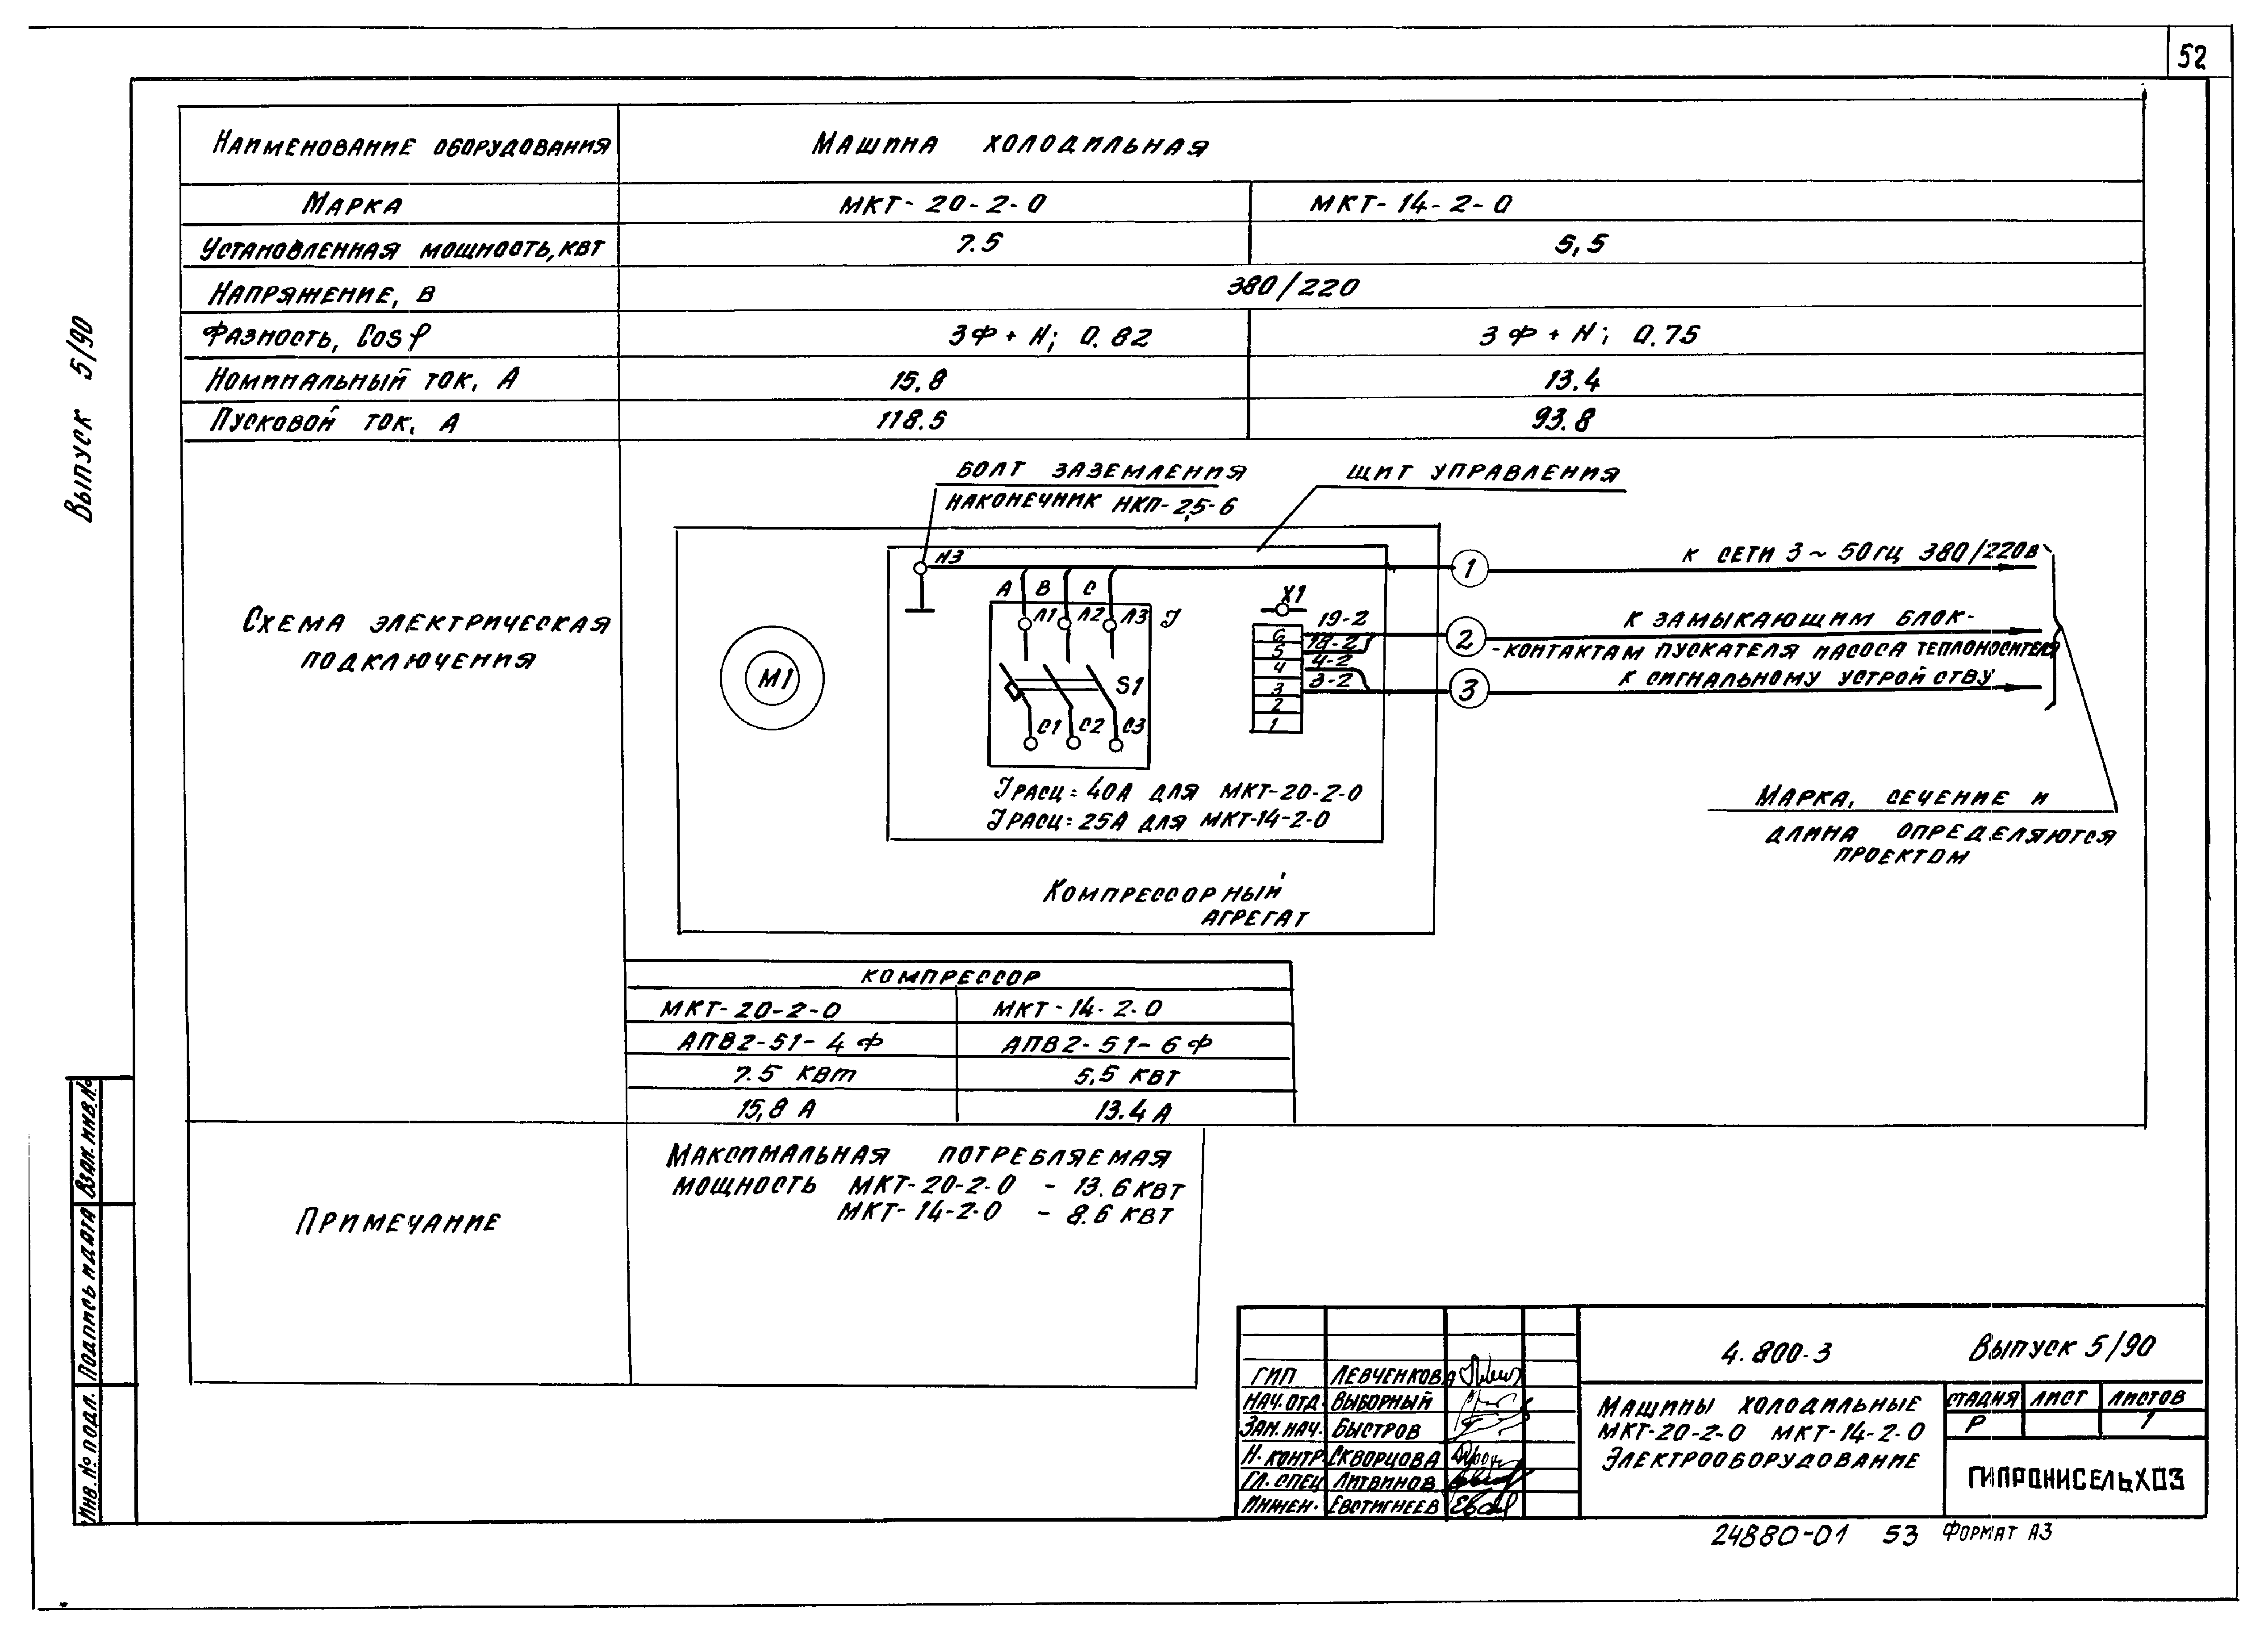 52
Выпуск 5/90
Наименование оборудования
Машина холодильная
Марка
МКТ-20-2-0
МКТ-14-2-0
Установленная мощность, квт
7.5
5,5
Напряжение, В
380/220
Фазность, Cos φ
3Ф + N; 0.82
3Ф + N; 0.75
Номинальный ток, А
15,8
13.4
Пусковой ток, А
118.5
93.8
Схема электрическая
подключения
болт заземления
наконечник НКП-2,5-6
щит управления
НЗ
А В С
Л1 Л2 Л3
S1
С1 С2 С3
М1
Х1
6
5
4
3
2
1
19-2
4-2
3-2
1
к сети 3 ~ 50 гц 380/220в
2
к замыкающим блок-
-контактам пускателя насоса теплоносителя
3
к сигнальному устройству
Jрасц = 40А для МКТ-20-2-0
Jрасц = 25А для МКТ-14-2-0
Марка, сечение и
длина определяются
проектом
Компрессорный
агрегат
компрессор
МКТ-20-2-0
МКТ-14-2-0
АПВ2-51-4Ф
АПВ2-51-6Ф
7.5 квт
5,5 квт
15,8 А
13.4 А
Примечание
Максимальная потребляемая
мощность МКТ-20-2-0 - 13.6 квт
МКТ-14-2-0 - 8.6 квт
Взам. инв. №
Подпись и дата
Инв. № подл.
ГИП Левченкова
Нач. отд. Выборный
Зам. нач. Быстров
Н. контр. Скворцова
Гл. спец Литвинов
Инжен. Евстигнеев
4.800-3 Выпуск 5/90
Машины холодильные
МКТ-20-2-0 МКТ-14-2-0
Электрооборудование
стадия лист листов
Р 1
ГИПРОНИСЕЛЬХОЗ
24880-01 53 Формат А3